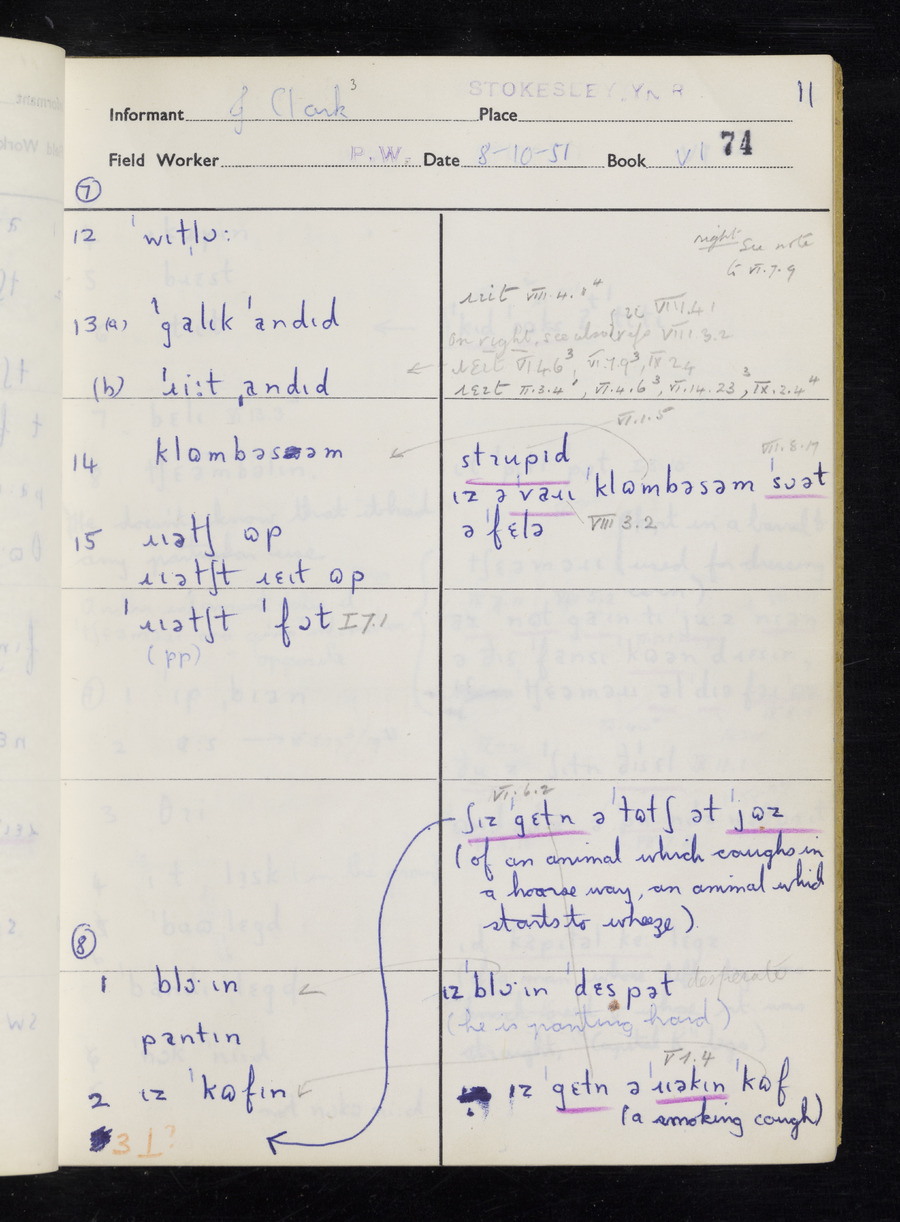 STOKESLEY. Y N R
11
Informant J Clark³ Place
Field Worker P.W. Date 8-10-51 Book VI 74
⑦
12 ˈwɪtlʊː
right See note
to VI.7.9
13 (a) ˈgalɪk ˈandɪd
ɹɛɪt VIII.4.
on right, see also VIII 3.2
ɹɛɪt VI 4.6³, VI.7.9³, IX 2.4
(b) ˈɹiːt ˌandɪd
ɹɛɪt II.3.4¹, VI.4.6³, VI.14.23³, IX.2.4⁴
VI.1.5
14 klɒmbəsəm
strupid VII.8.17
ɪz ə ˈvaɹɪ ˈklɒmbəsəm ˈsʊət
ə ˈfɛlə VIII 3.2
15 ɹɪətʃ ɒp
ɹɪətʃt ɹɛɪt ɒp
ˈɹɪətʃt ˈfət I 7.1
(pp)
VI.6.2
ʃɪz ˈgɛtn ə ˈtɒtʃ ət ˈjɒz
(of an animal which coughs in
a hoarse way, an animal which
starts to wheeze).
⑧
1 blɔˑɪn
ɪz ˈblɔˑɪn ˈdɛspət desperate
pantɪn
(he is panting hard)
V 1.4
2 ɪz ˈkɒfɪn
ɪz ˈgɛtn ə ˈɹɪəkɪn ˈkɒf
(a smoking cough)
3 ⊥?